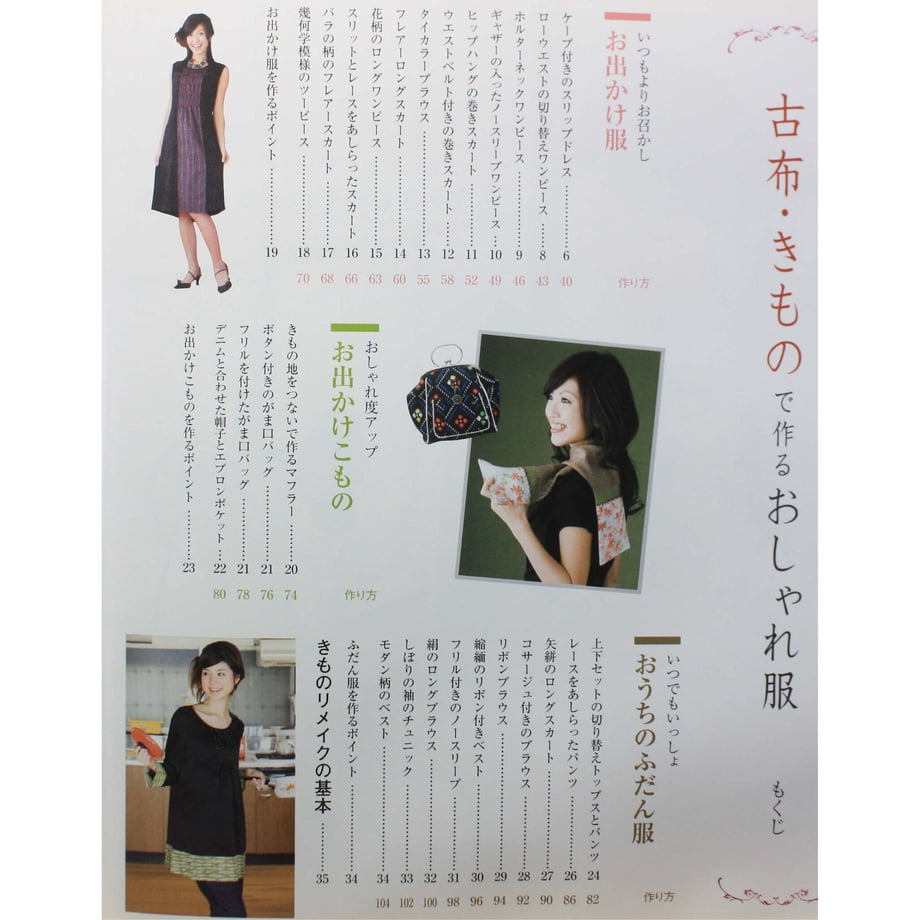 古布・きもので作るおしゃれ服
もくじ
いつもよりお召かし
お出かけ服
作り方
ケープ付きのスリップドレス 6 40
ローウエストの切り替えワンピース 8 43
ホルターネックワンピース 9 46
ギャザーの入ったノースリーブワンピース 10 49
ヒップハングの巻きスカート 11 52
ウエストベルト付きの巻きスカート 12 58
タイカラーブラウス 13 55
フレアーロングスカート 14 60
花柄のロングワンピース 15 63
スリットとレースをあしらったスカート 16 66
バラの柄のフレアースカート 17 68
幾何学模様のツーピース 18 70
お出かけ服を作るポイント 19
おしゃれ度アップ
お出かけこもの
作り方
きもの地をつないで作るマフラー 20 74
ボタン付きのがま口バッグ 21 76
フリルを付けたがま口バッグ 21 78
デニムと合わせた帽子とエプロンポケット 22 80
お出かけこものを作るポイント 23
いつでもいっしょ
おうちのふだん服
作り方
上下セットの切り替えトップスとパンツ 24 82
レースをあしらったパンツ 26 86
矢絣のロングスカート 27 90
コサージュ付きのブラウス 28 92
リボンブラウス 29 94
縮緬のリボン付きベスト 30 96
フリル付きのノースリーブ 31 98
絹のロングブラウス 32 100
しぼりの袖のチュニック 33 102
モダン柄のベスト 34 104
ふだん服を作るポイント 34
きものリメイクの基本 35